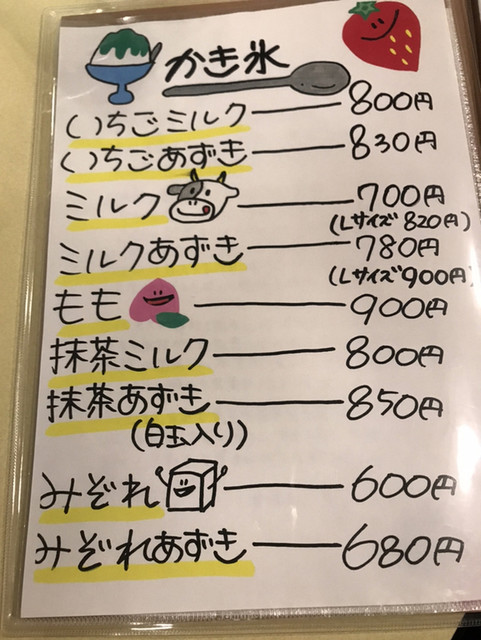 かき氷
いちごミルク 800円
いちごあずき 830円
ミルク 700円
(Lサイズ 820円)
ミルクあずき 780円
(Lサイズ 900円)
もも 900円
抹茶ミルク 800円
抹茶あずき 850円
(白玉入り)
みぞれ 600円
みぞれあずき 680円